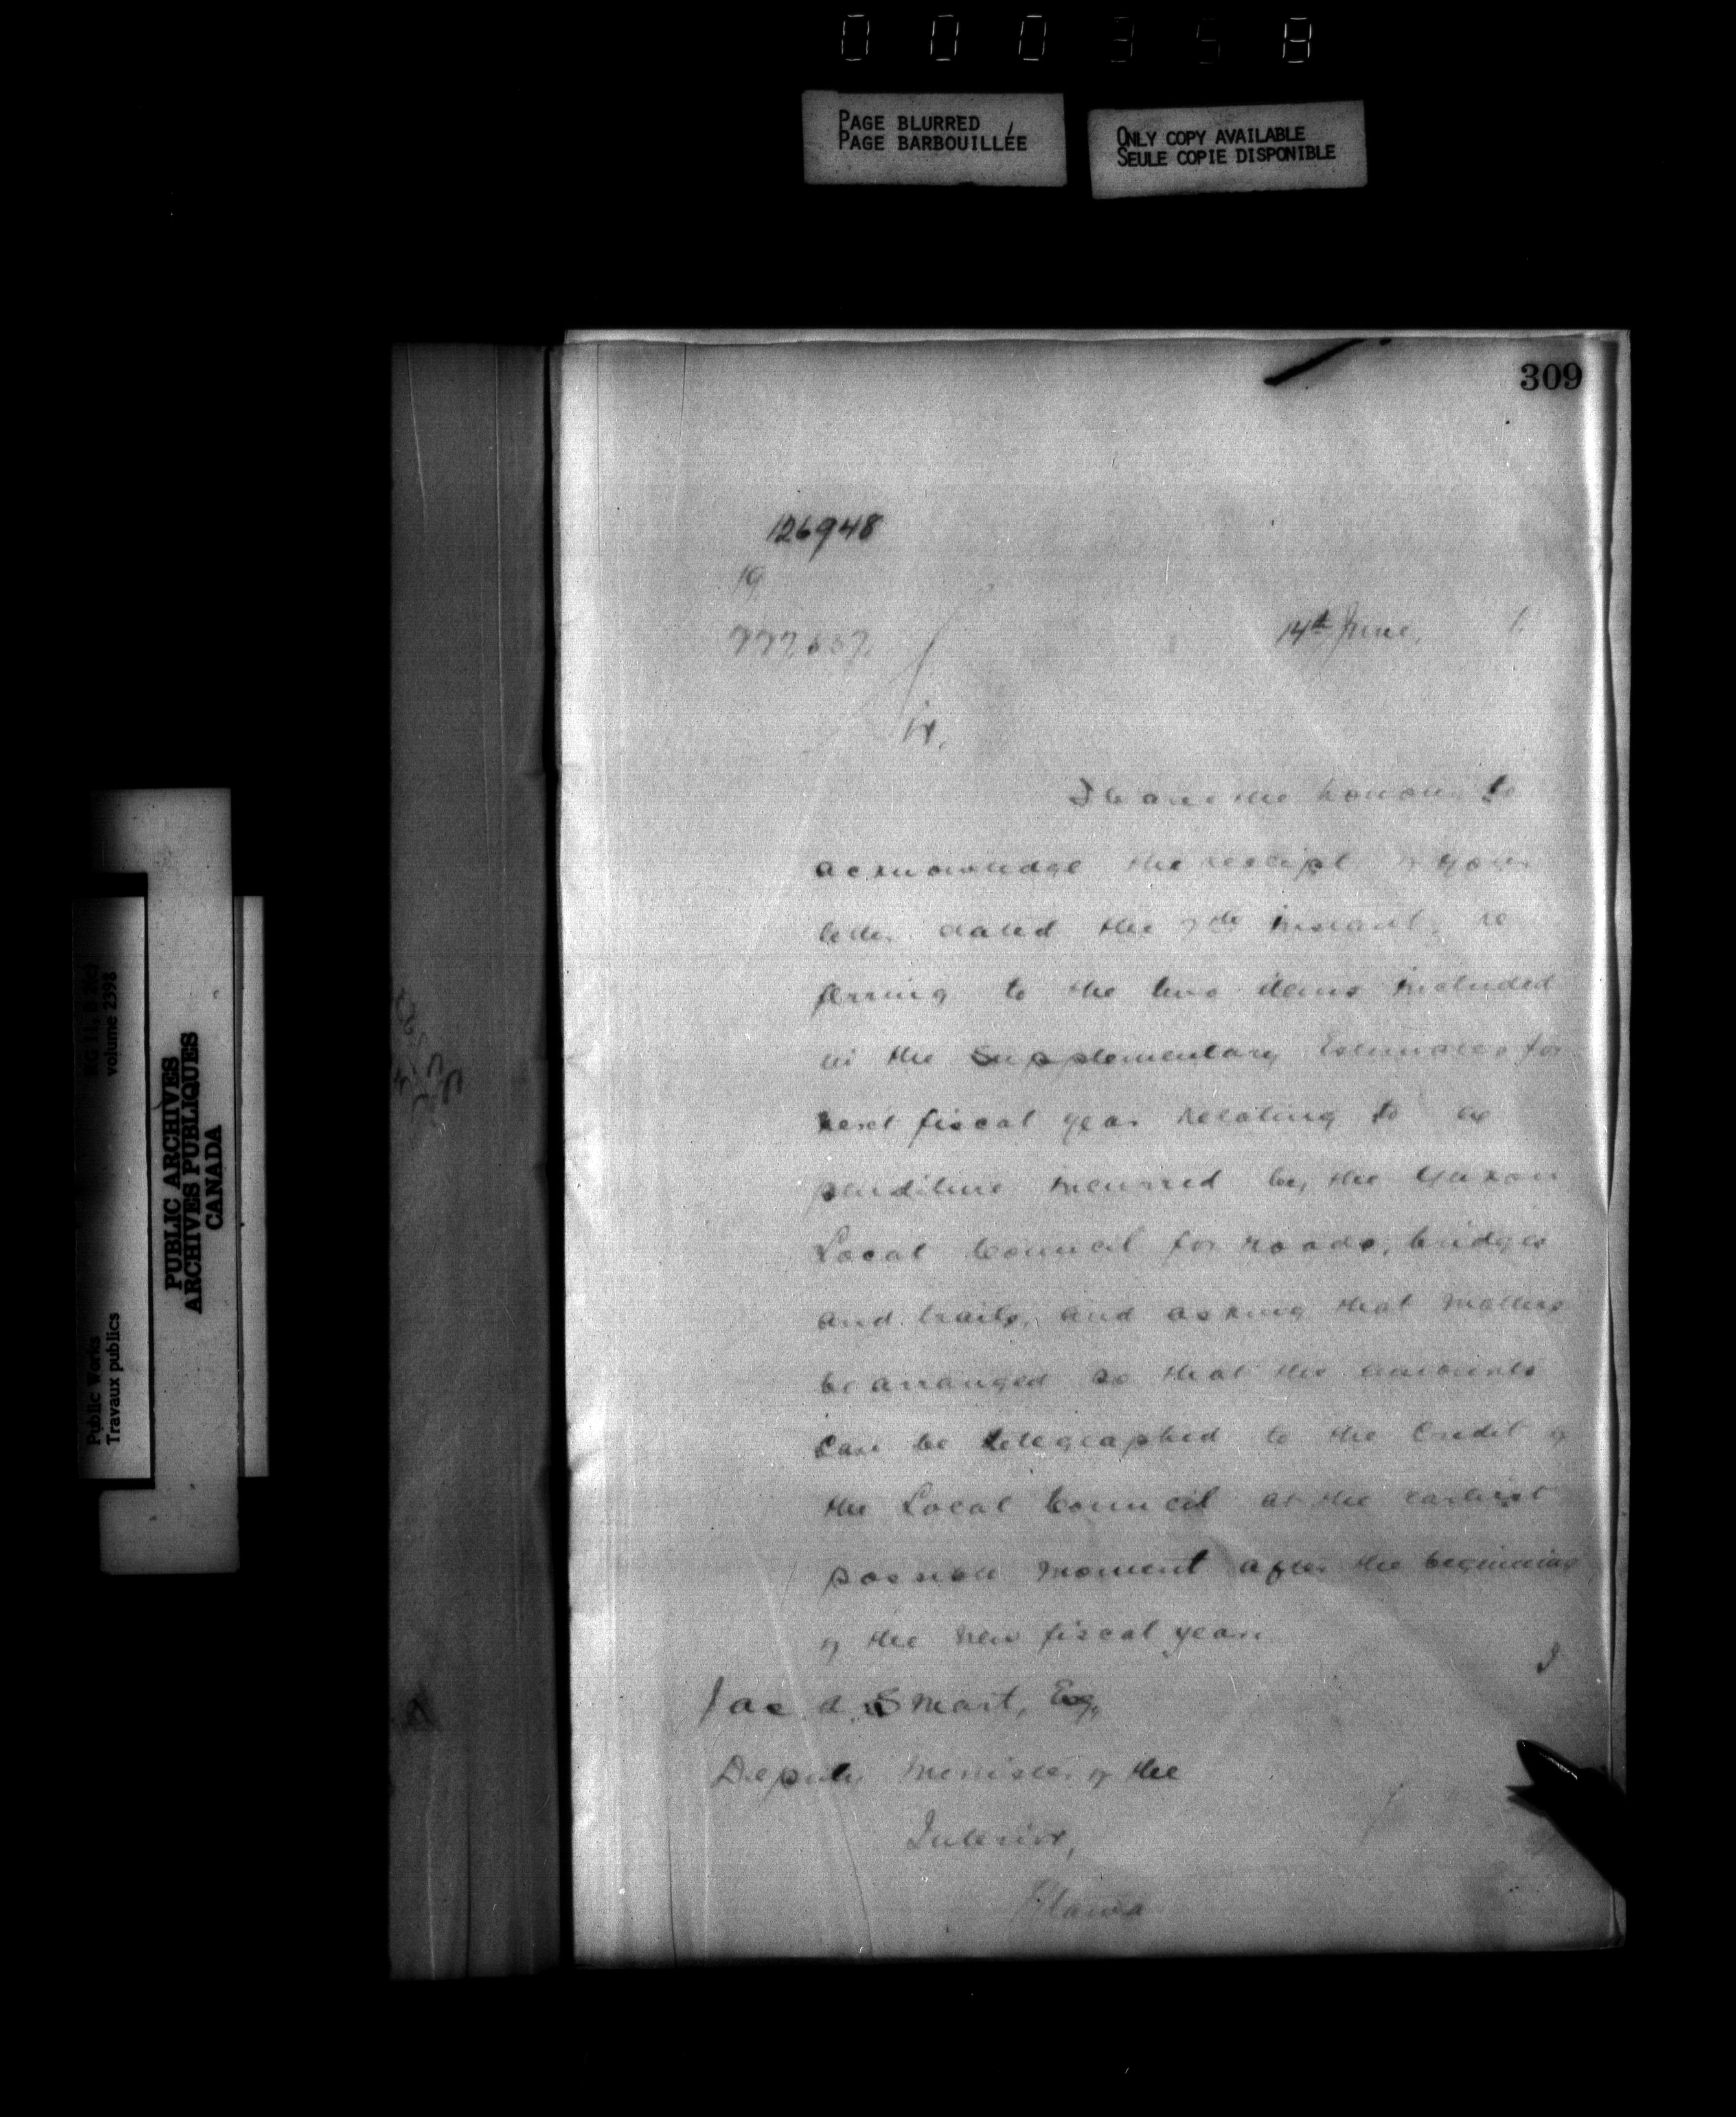 000358
PAGE BLURRED
PAGE BARBOUILLÉE
ONLY COPY AVAILABLE
SEULE COPIE DISPONIBLE
309
126948
19
14th June, 1.
ir,
I have the honour to
acknowledge the receipt of your
letter dated the 7th instant, re
ferring to the two items included
in the Supplementary Estimates for
next fiscal year relating to ex
penditure incurred by the Yukon
Local Council for roads, bridges
and trails, and asking that matters
be arranged so that the amounts
can be telegraphed to the Credit of
the Local Council at the earliest
possible moment after the beginning
of the new fiscal year.
I
Jas. A. Smart, Esq,
Deputy Minister of the
Interior,
Ottawa
Public Works
Travaux publics
RG 11, B 2(c)
volume 2398
PUBLIC ARCHIVES
ARCHIVES PUBLIQUES
CANADA